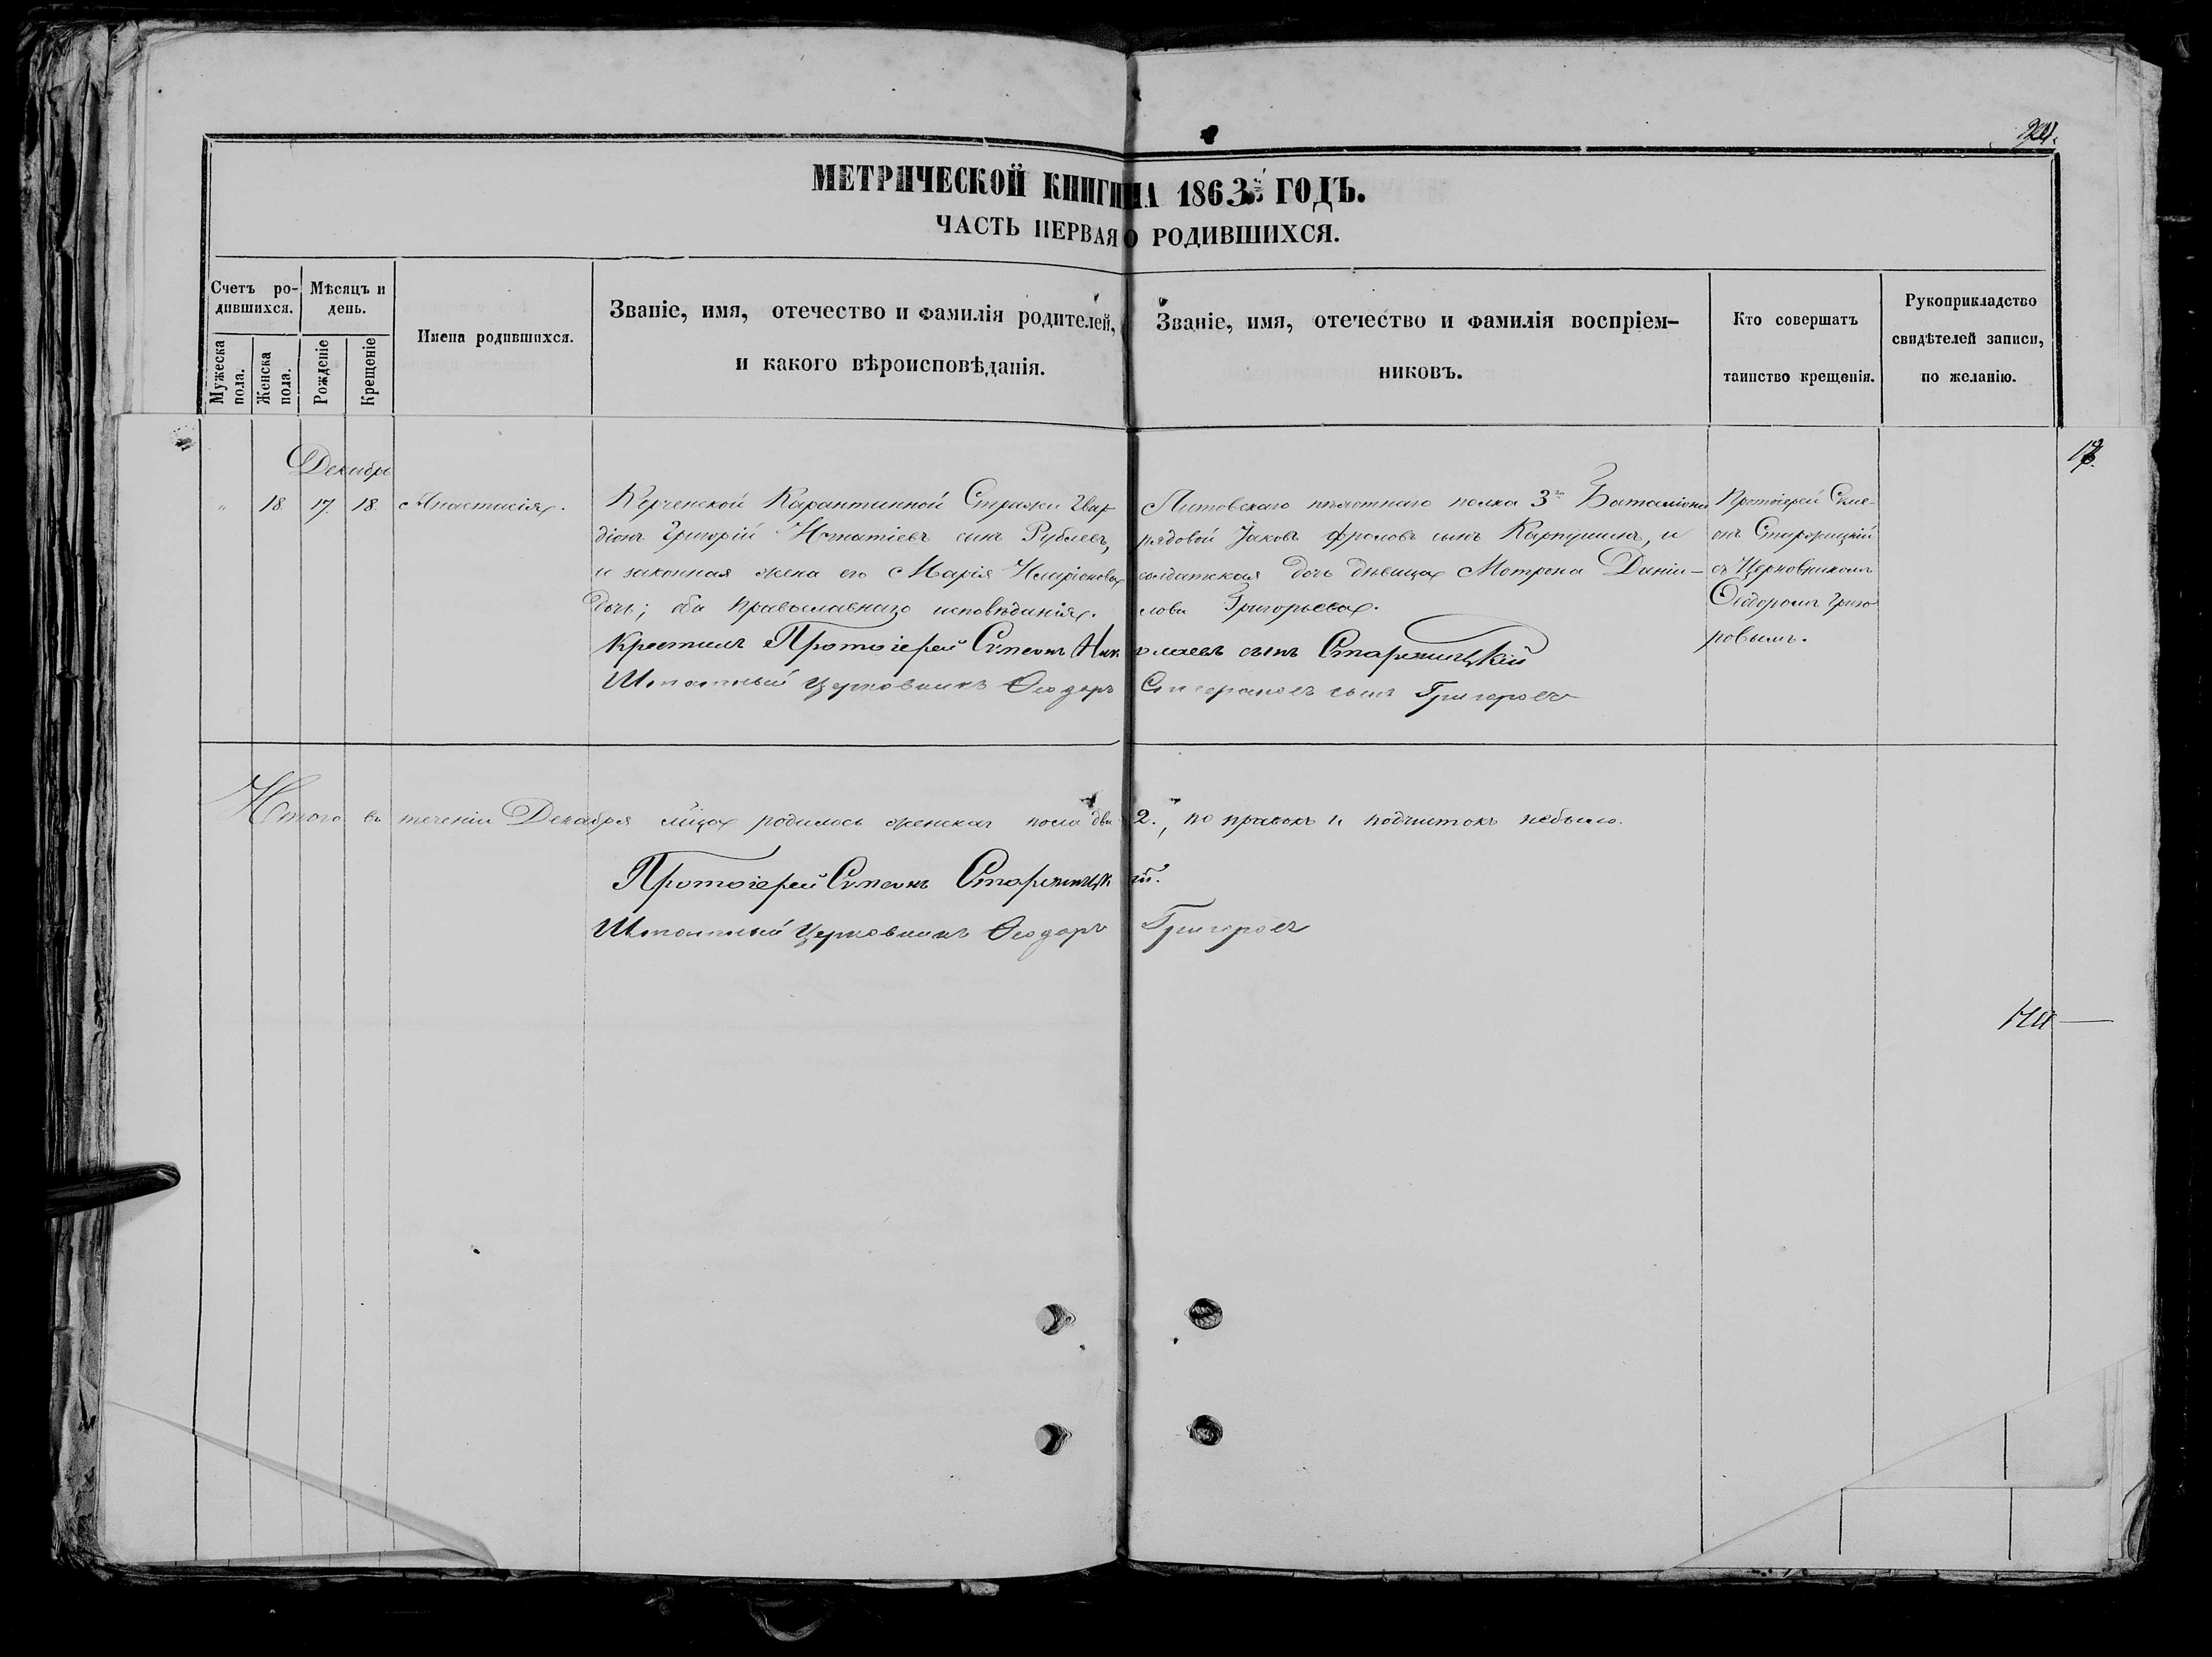 МЕТРИЧЕСКОЙ КНИГИ НА 1863й ГОДЪ.
ЧАСТЬ ПЕРВАЯ О РОДИВШИХСЯ.
Счетъ ро-
дившихся.
Мужеска
пола.
Женска
пола.
Мѣсяцъ и
день.
Рожденіе
Крещеніе
Имена родившихся.
Званіе, имя, отечество и фамилія родителей,
и какого вѣроисповѣданія.
Званіе, имя, отечество и фамилія воспріем-
никовъ.
Кто совершатъ
таинство крещенія.
Рукоприкладство
свидѣтелей записи,
по желанію.
Декабрь
" 18. 17. 18. Анастасія.
Керченской Карантинной Стражи Гвар-
діонъ Григорій Игнатіевъ сынъ Рублевъ,
и законная жена его Марія Иларіонова
дочь; оба Православнаго исповѣданія.
Литовскаго пѣхотнаго полка 3го Баталіона
рядовой Јаковъ Фроловъ сынъ Карпушинъ, и
солдатская дочь дѣвица Мотрона Даніи-
лова Григорьева.
Протоіерей Симе-
онъ Старжицкій
съ Церковникомъ
Ѳеодоромъ Григо
ровымъ.
Крестилъ Протоіерей Сѵмеонъ Николаевъ сынъ Старжицкій
Штатный Церковникъ Ѳеодоръ Стефановъ сынъ Григоровъ
Итого въ теченіи Декабря мѣсяца родилось женска пола два 2., по правокъ и подчистокъ небыло.
Протоіерей Сѵмеонъ Старжицкій.
Штатный Церковникъ Ѳеодоръ Григоровъ